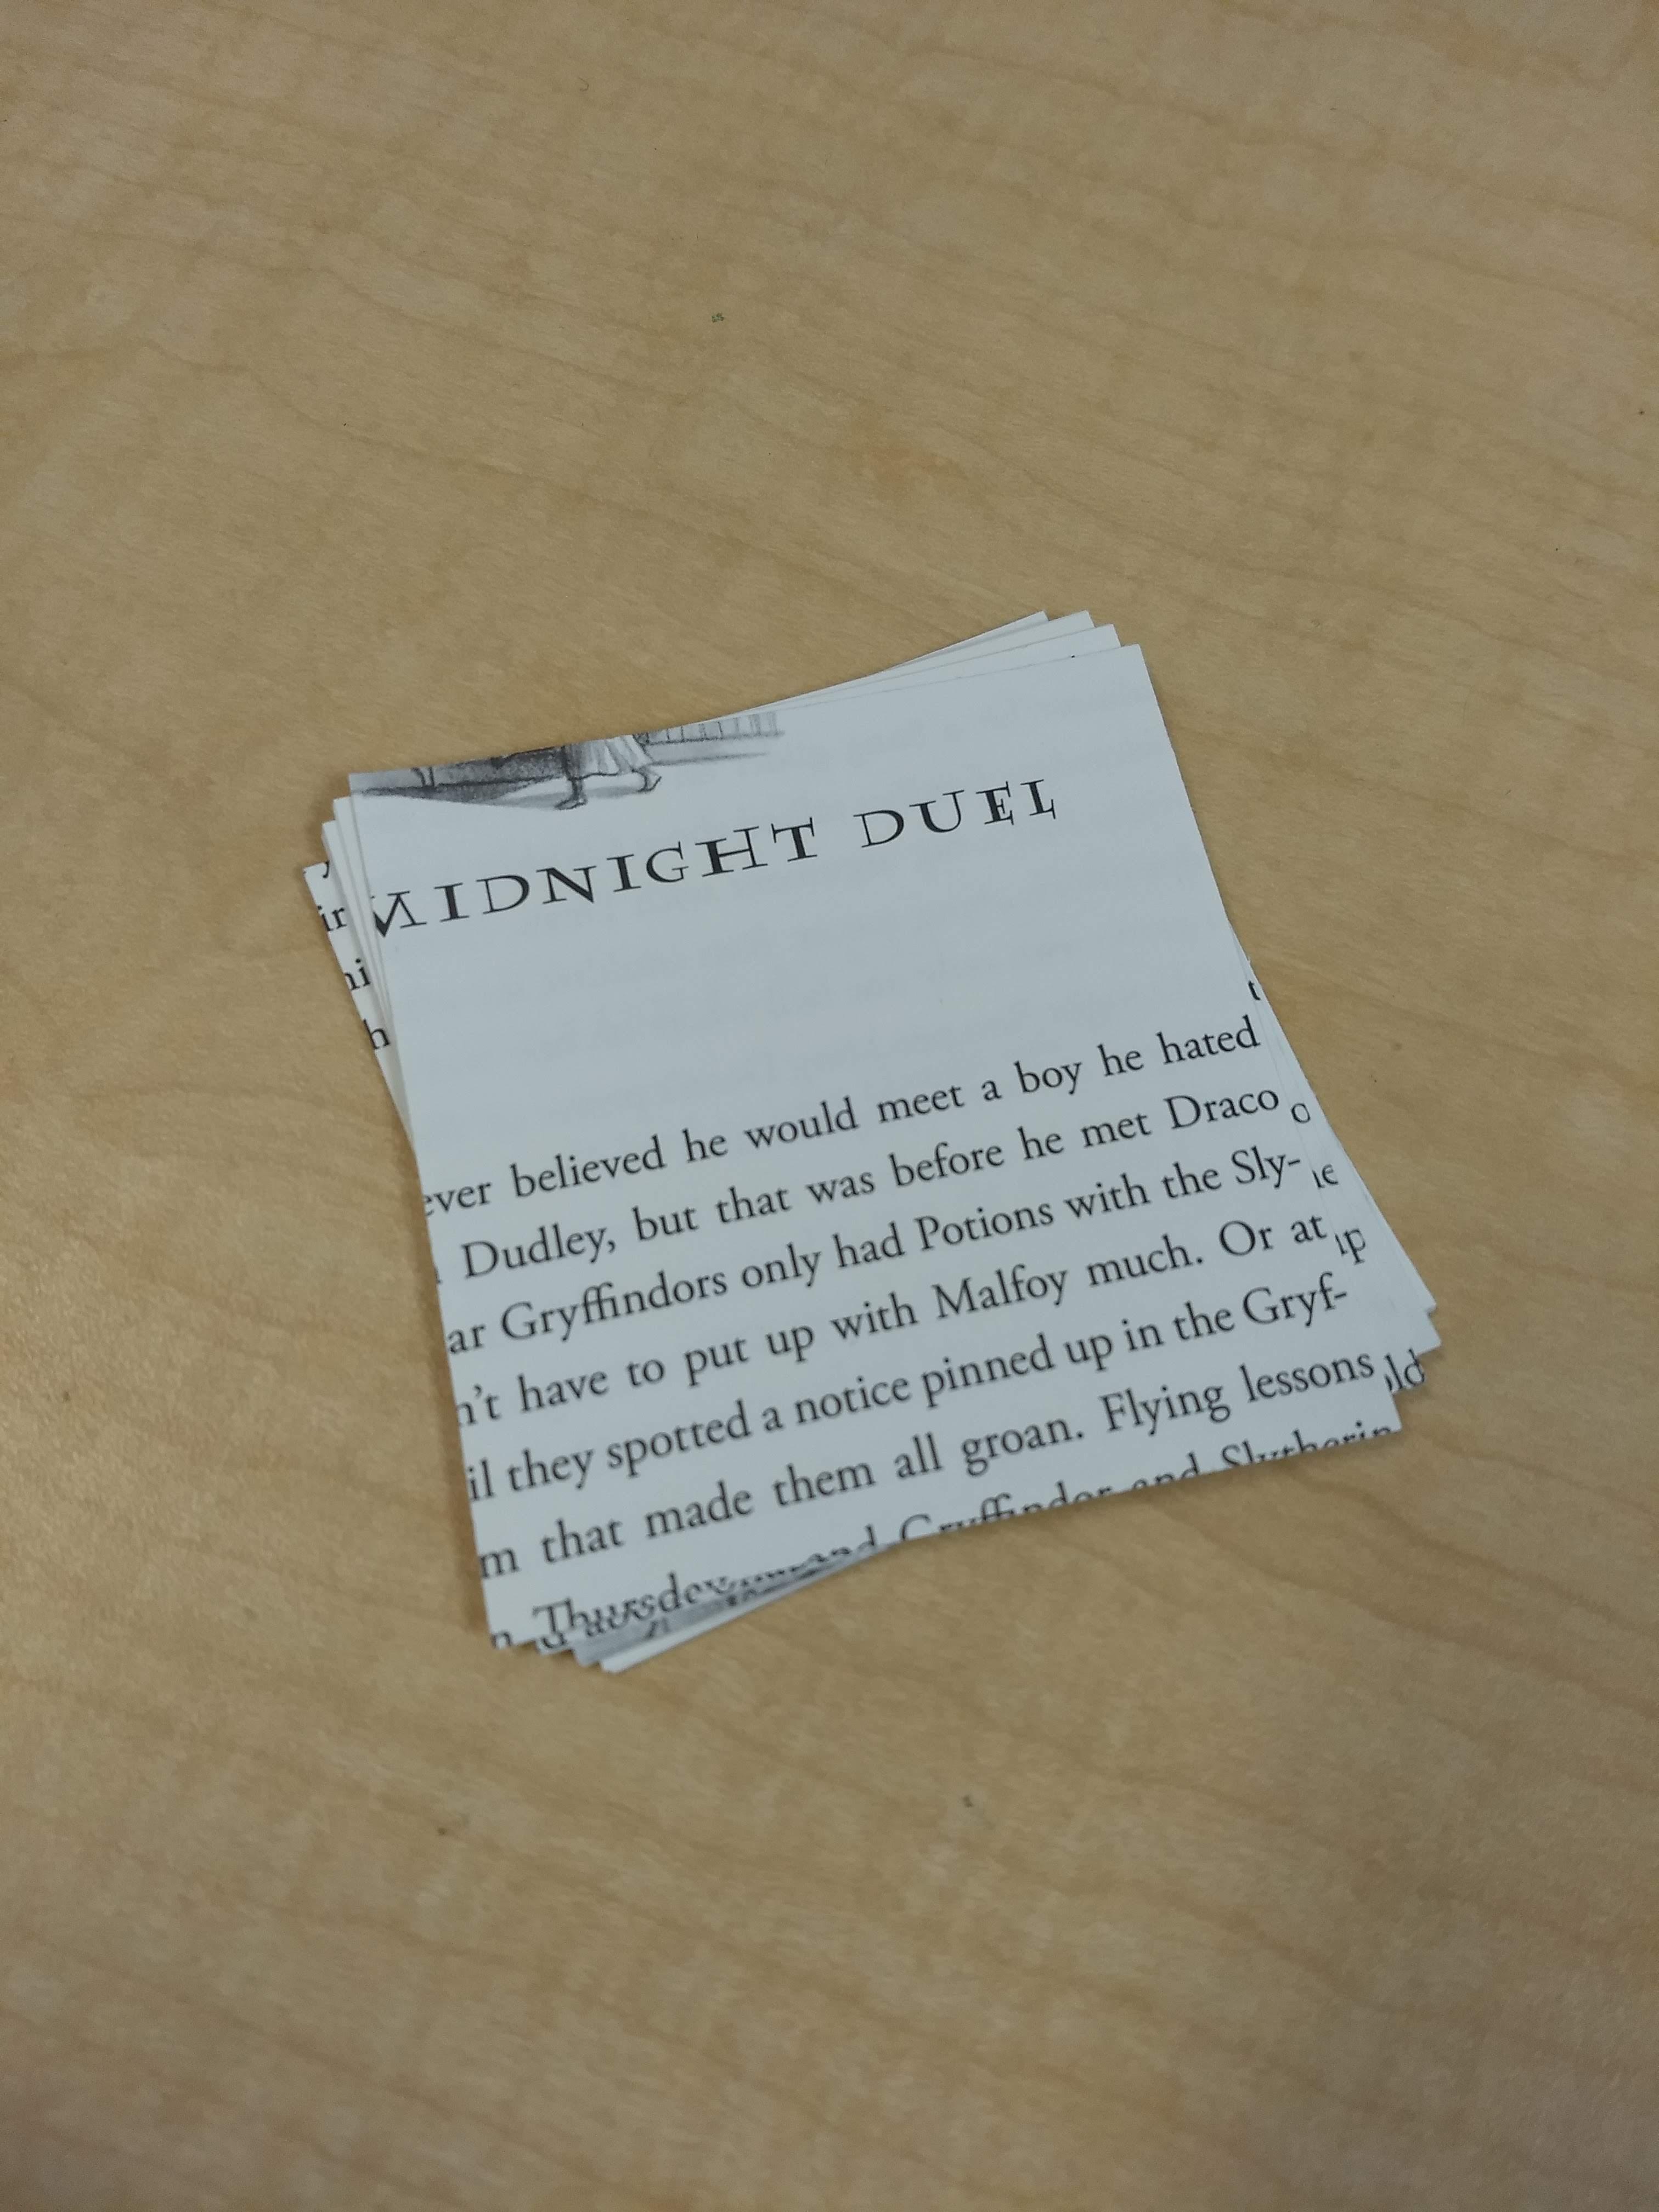 MIDNIGHT DUEL
ever believed he would meet a boy he hated
Dudley, but that was before he met Draco
ar Gryffindors only had Potions with the Sly-
n't have to put up with Malfoy much. Or at
il they spotted a notice pinned up in the Gryf-
m that made them all groan. Flying lessons
Thursday and Gryffindor and Slytherin